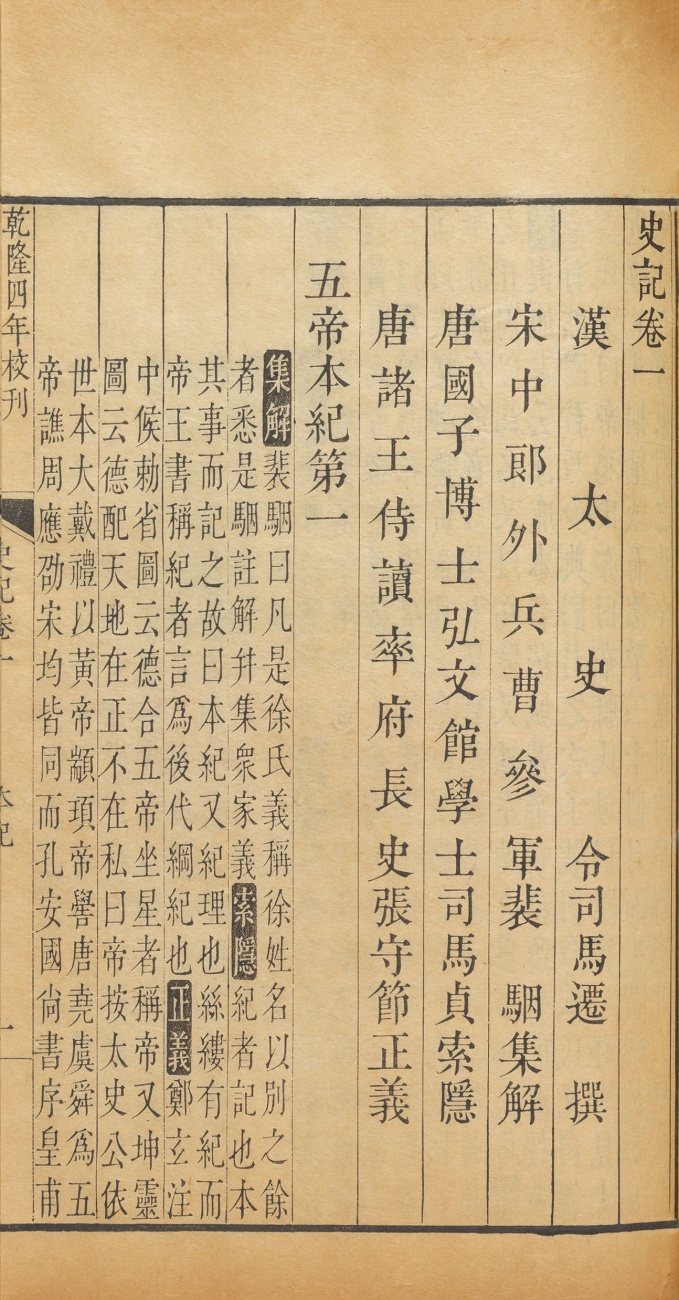 史記卷一
漢太史令司馬遷撰
宋中郎外兵曹參軍裴駰集解
唐國子博士弘文館學士司馬貞索隱
唐諸王侍讀率府長史張守節正義
五帝本紀第一
集解裴駰曰凡是徐氏義稱徐姓名以別之餘
者悉是駰註解幷集衆家義索隱紀者記也本
其事而記之故曰本紀又紀理也絲縷有紀而
帝王書稱紀者言爲後代綱紀也正義鄭玄注
中候勅省圖云德合五帝坐星者稱帝又坤靈
圖云德配天地在正不在私曰帝按太史公依
世本大戴禮以黃帝顓頊帝嚳唐堯虞舜爲五
帝譙周應劭宋均皆同而孔安國尙書序皇甫
乾隆四年校刊
史記卷一
本紀
一